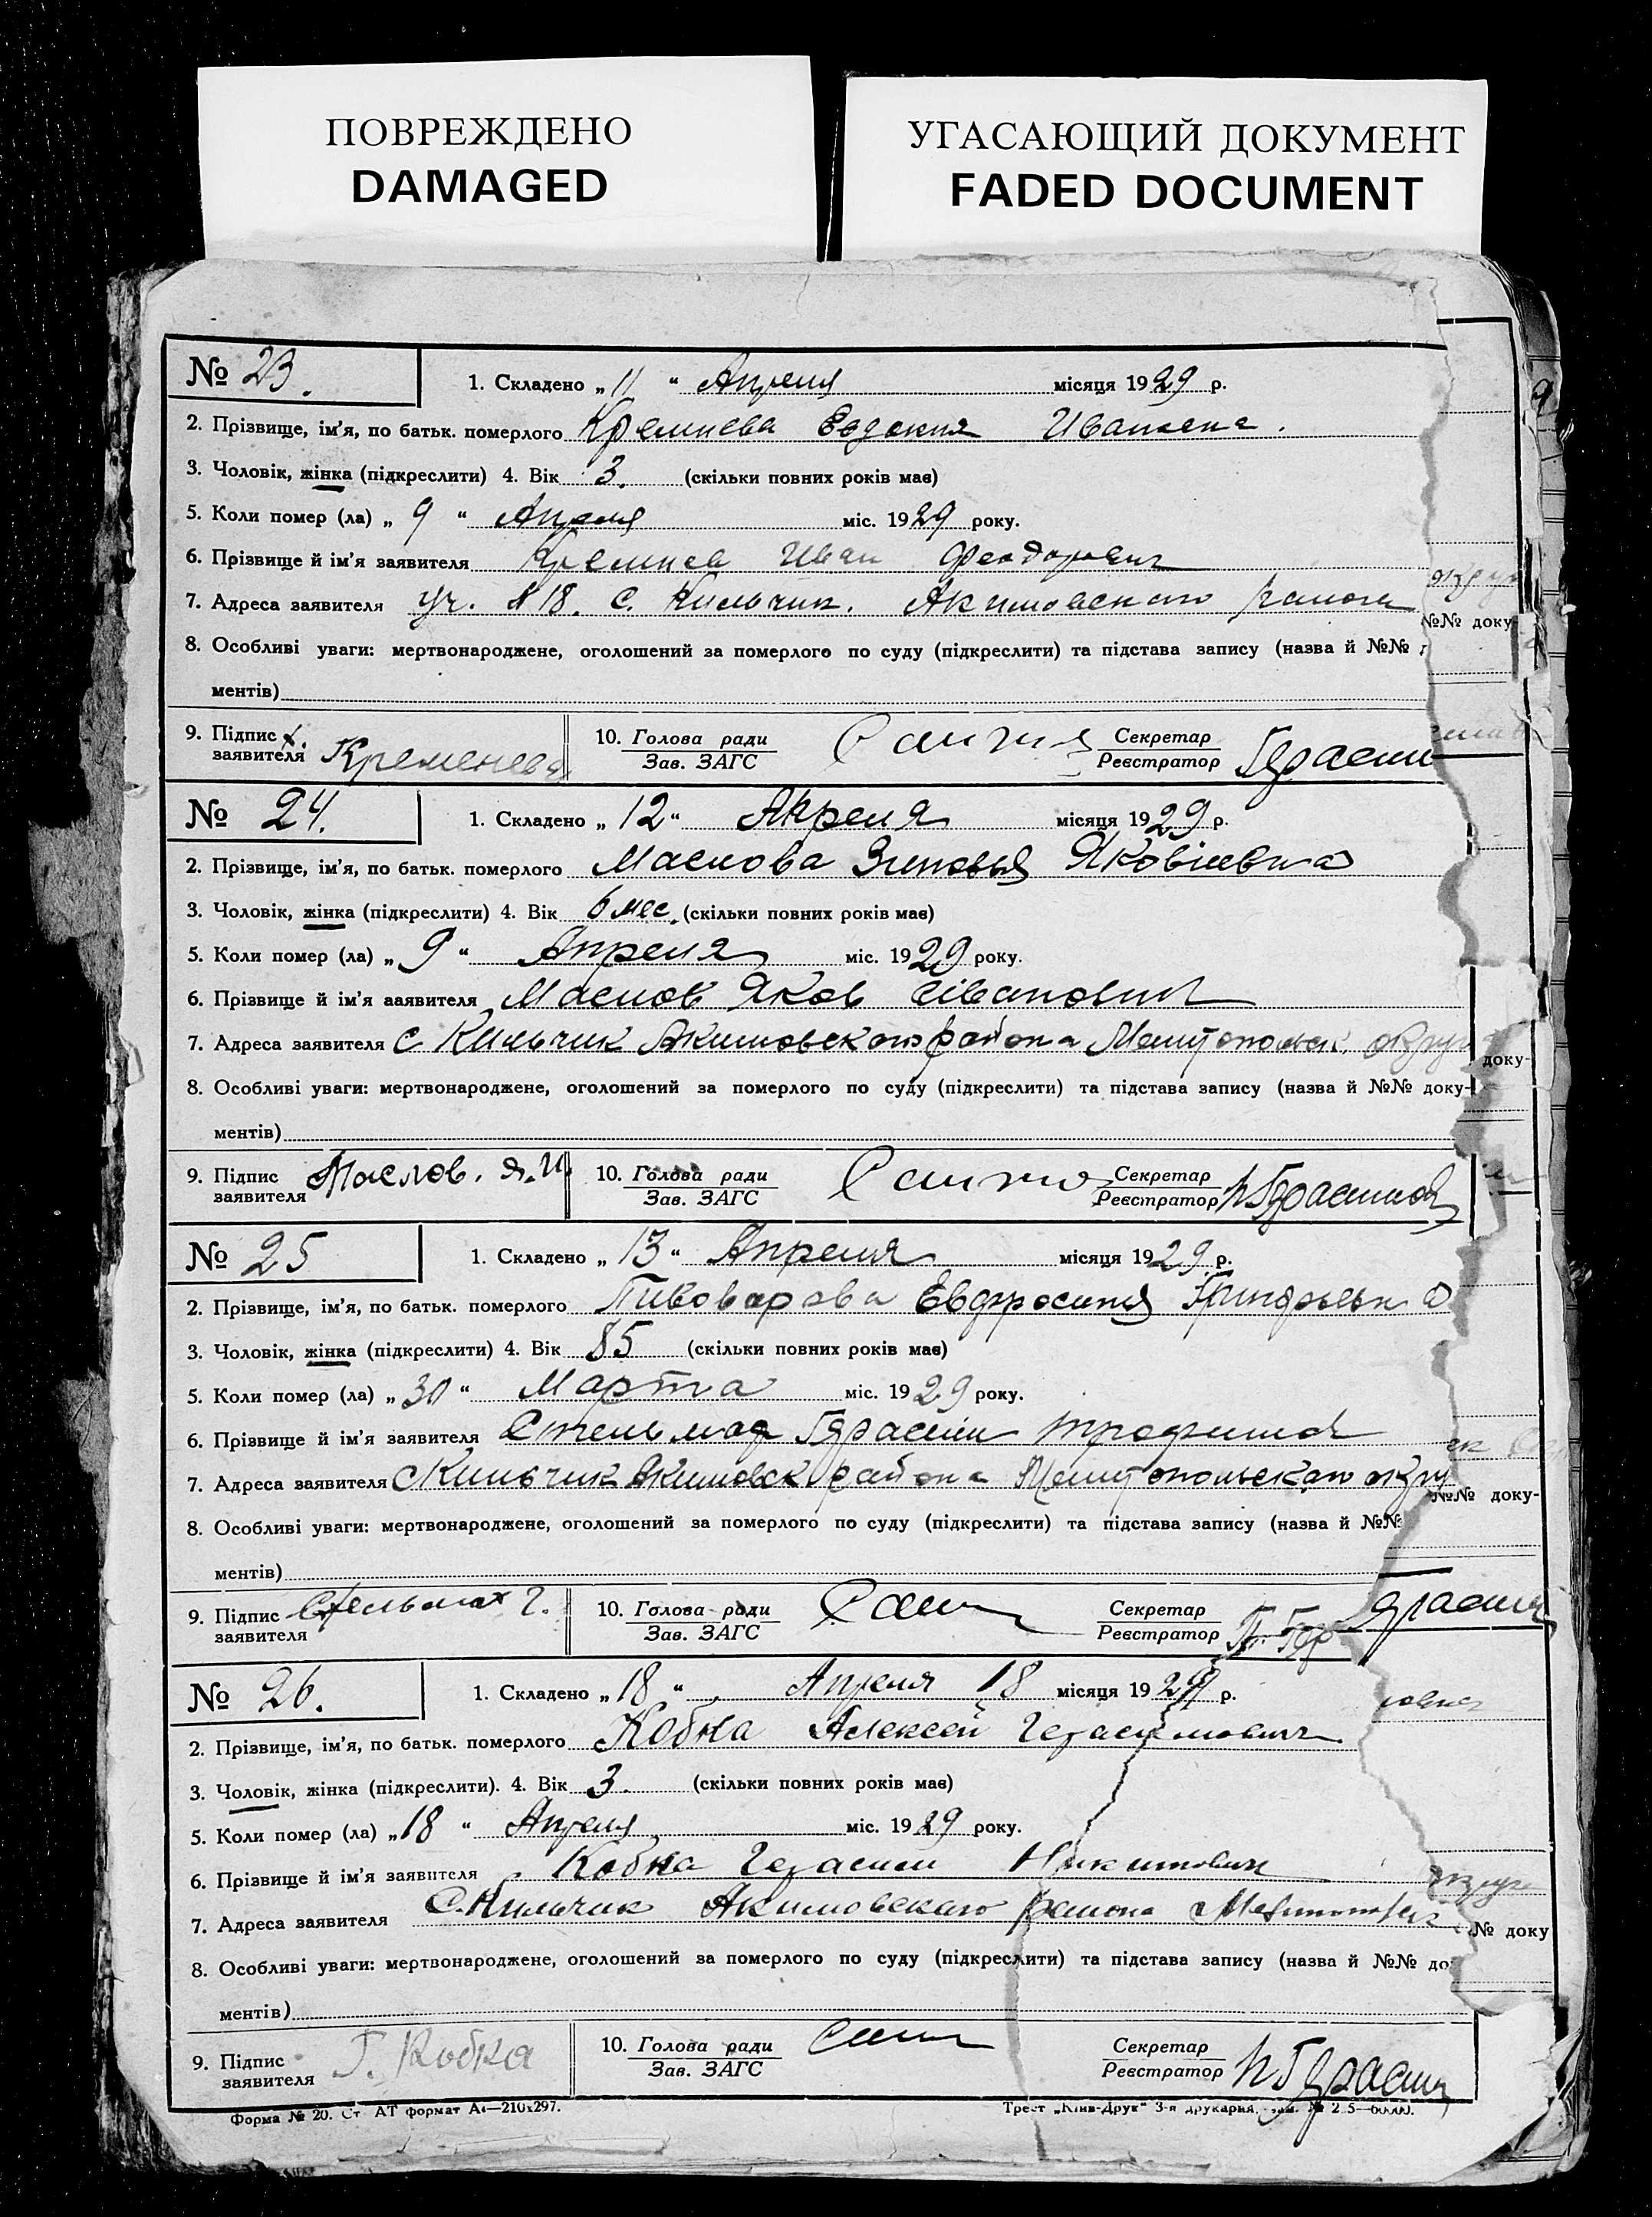 ПОВРЕЖДЕНО
DAMAGED
УГАСАЮЩИЙ ДОКУМЕНТ
FADED DOCUMENT
№ 23. 1. Складено „ 11 “ Апреля місяця 1929 р.
2. Прізвище, ім'я, по батьк. померлого Кремнева Евдокия Ивановна.
3. Чоловік, жінка (підкреслити) 4. Вік 3. (скільки повних років має)
5. Коли помер (ла) „ 9 “ Апреля міс. 1929 року.
6. Прізвище й ім'я заявителя Кремнев Иван Феодорович
7. Адреса заявителя уч. №18. С. Кильчик. Акимовского района
№№ доку
8. Особливі уваги: мертвонароджене, оголошений за померлого по суду (підкреслити) та підстава запису (назва й №№
ментів)
9. Підпис заявителя Кременева 10. Голова ради Зав. ЗАГС Секретар Реєстратор Герасим
№ 24. 1. Складено „ 12 “ Апреля місяця 1929 р.
2. Прізвище, ім'я, по батьк. померлого Маслова Зиновья Яковлевна
3. Чоловік, жінка (підкреслити) 4. Вік 6 мес. (скільки повних років має)
5. Коли помер (ла) „ 9 “ Апреля міс. 1929 року.
6. Прізвище й ім'я заявителя Маслов Яков Иванович
7. Адреса заявителя с Кильчик Акимовского района Мелитопольск. округ
доку-
8. Особливі уваги: мертвонароджене, оголошений за померлого по суду (підкреслити) та підстава запису (назва й №№ доку-
ментів)
9. Підпис заявителя Маслов. Я.И. 10. Голова ради Зав. ЗАГС Секретар Реєстратор П Герасимов
№ 25 1. Складено „ 13 “ Апреля місяця 1929 р.
2. Прізвище, ім'я, по батьк. померлого Пивоварова Евдросиния
3. Чоловік, жінка (підкреслити) 4. Вік 85 (скільки повних років має)
5. Коли помер (ла) „ 30 “ Марта міс. 1929 року.
6. Прізвище й ім'я заявителя Стельмах Герасим Трофимов
7. Адреса заявителя С Кильчик Акимовск района Мелитопольскаго окру
№№ доку-
8. Особливі уваги: мертвонароджене, оголошений за померлого по суду (підкреслити) та підстава запису (назва й №№
ментів)
9. Підпис заявителя Стельмах Г. 10. Голова ради Зав. ЗАГС Секретар Реєстратор П. Гер
№ 26. 1. Складено „ 18 “ Апреля 18 місяця 1929 р.
2. Прізвище, ім'я, по батьк. померлого Кобка Алексей Герасимович
3. Чоловік, жінка (підкреслити). 4. Вік 3. (скільки повних років має)
5. Коли помер (ла) „ 18 “ Апреля міс. 1929 року.
6. Прізвище й ім'я заявителя Кобка Герасим Никитович
7. Адреса заявителя С. Кильчик Акимовскаго района Мелитопольск
№ доку
8. Особливі уваги: мертвонароджене, оголошений за померлого по суду (підкреслити) та підстава запису (назва й №№ до
ментів)
9. Підпис заявителя Г. Кобка 10. Голова ради Зав. ЗАГС Секретар Реєстратор П Герасим
Форма № 20. Ст. АТ формат А4—210х297. Трест „Київ-Друк“ 3-я друкарня,